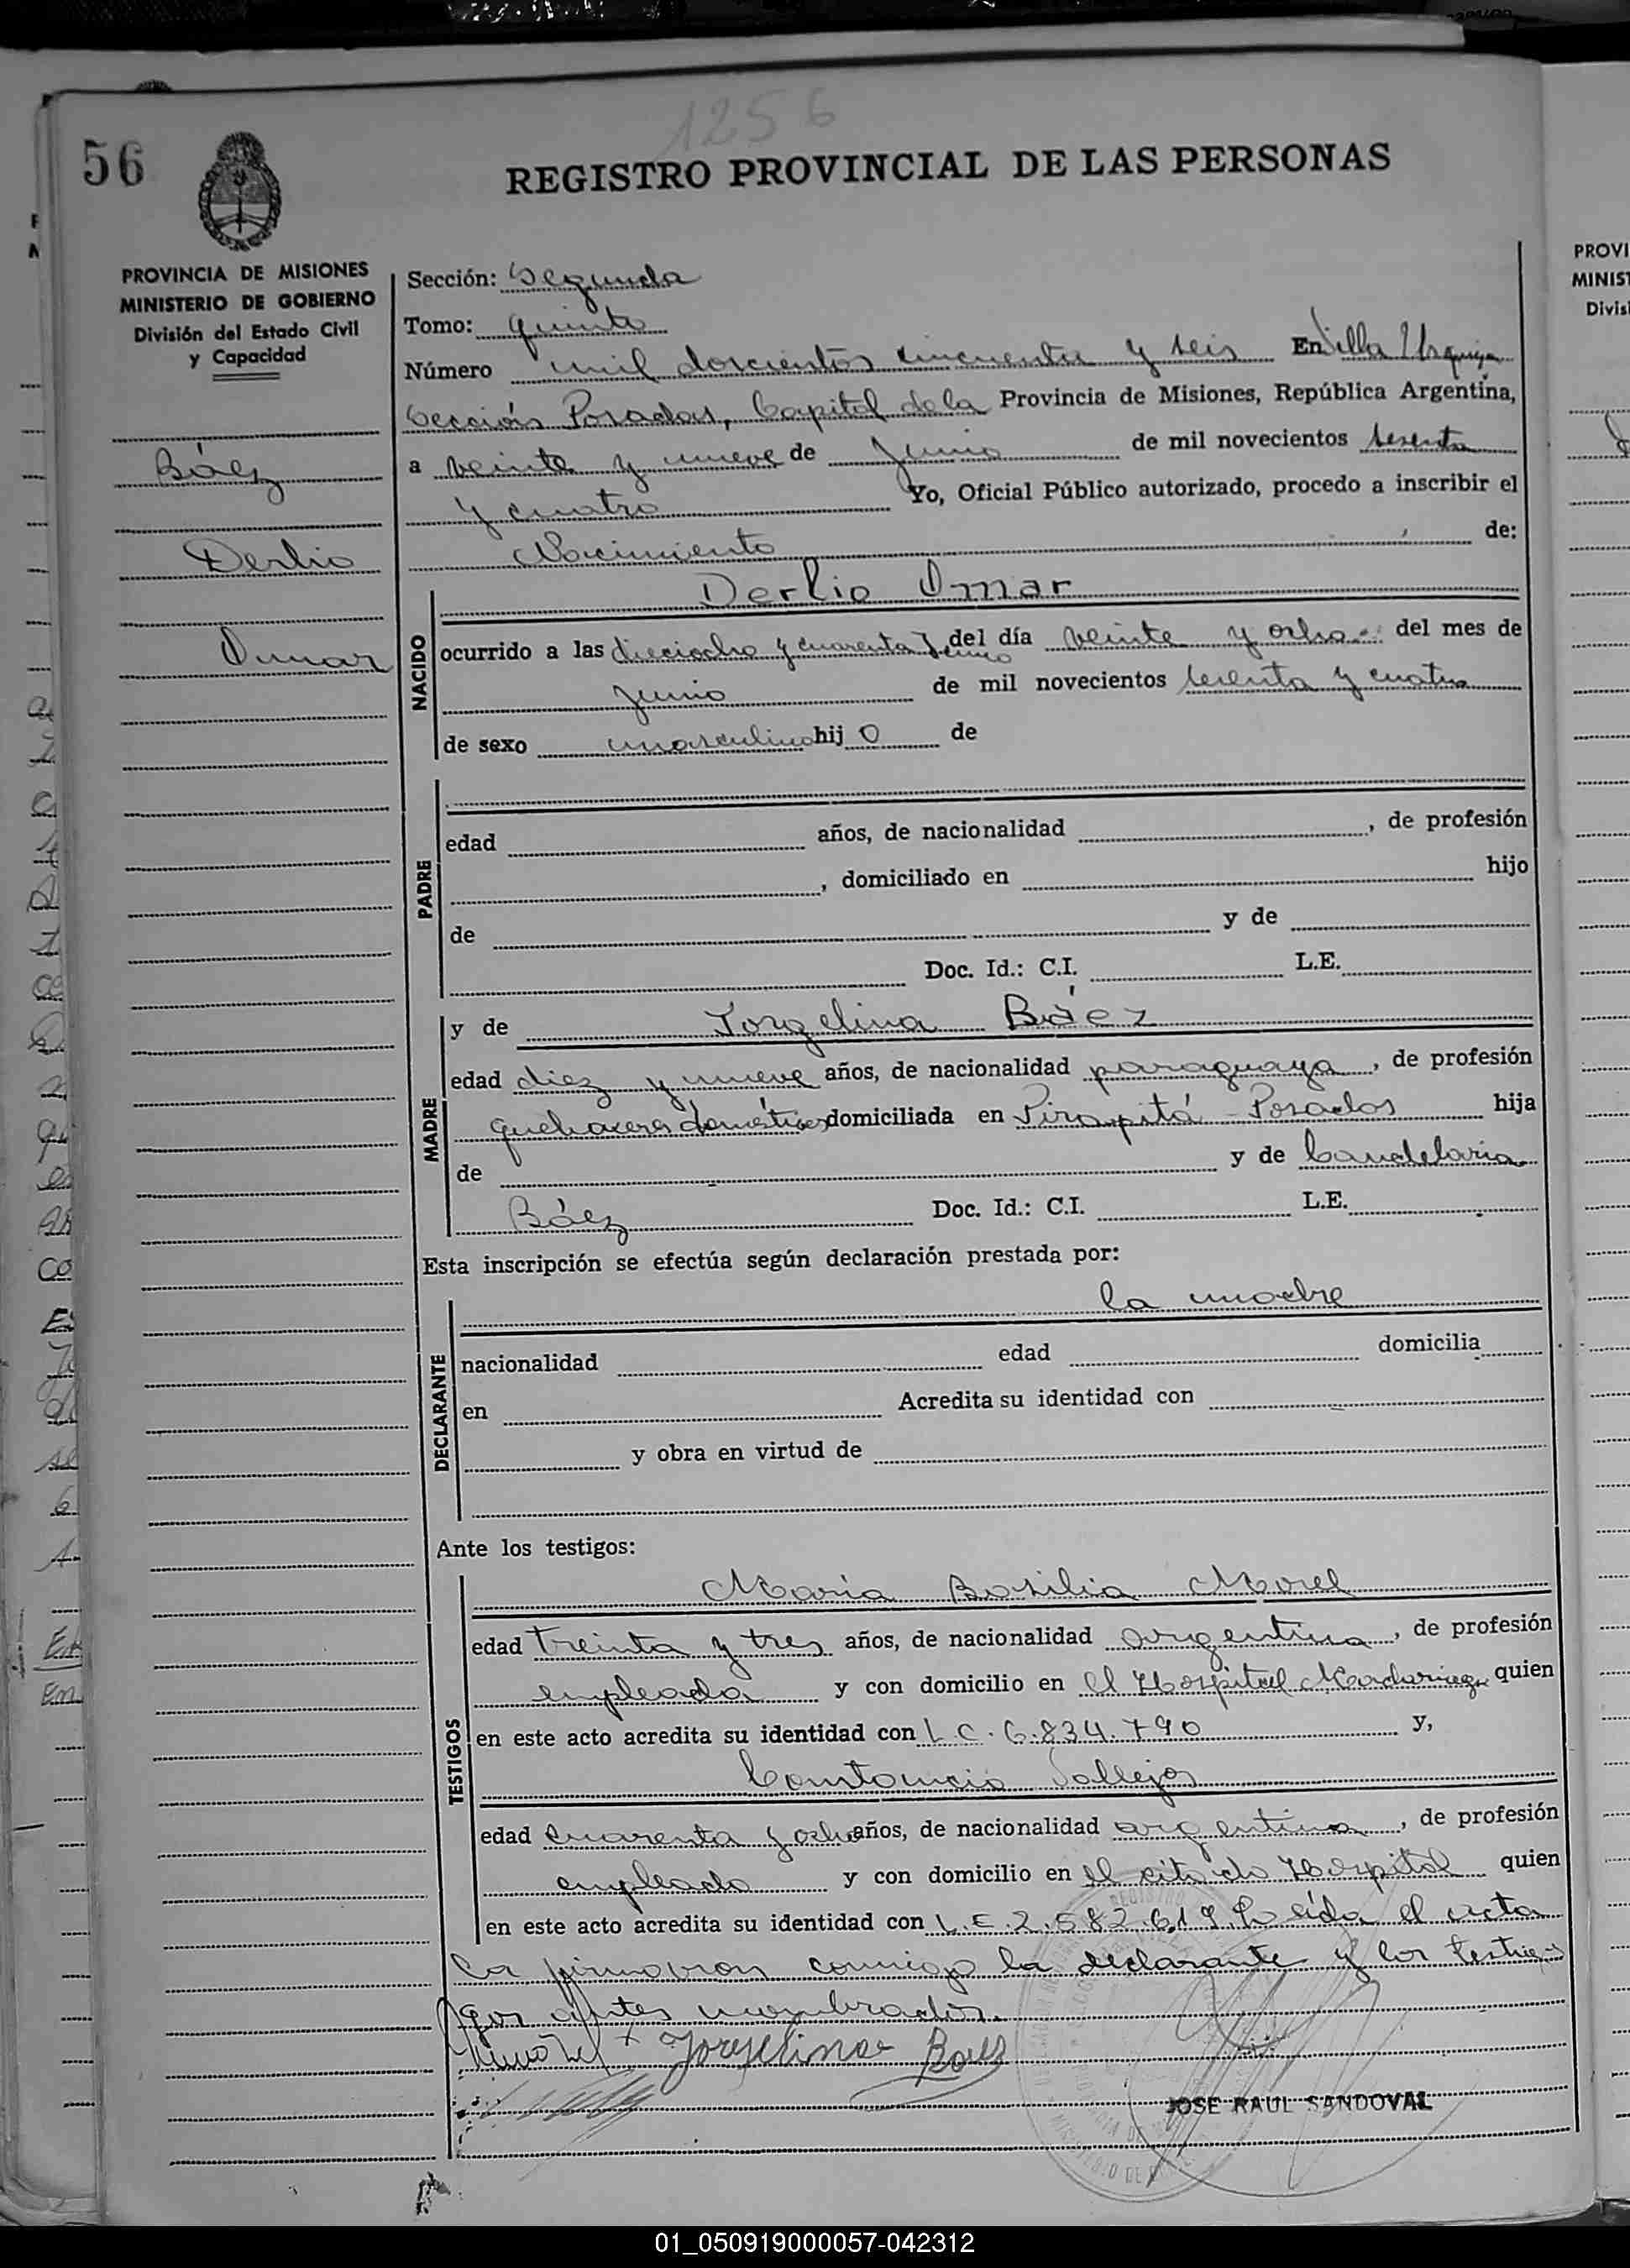 1256
56
REGISTRO PROVINCIAL DE LAS PERSONAS
PROVINCIA DE MISIONES
MINISTERIO DE GOBIERNO
División del Estado Civil
y Capacidad
Báez
Derlio
Omar
Sección: Segunda
Tomo: quinto
Número mil doscientos cincuenta y seis En Villa Urquiza
Sección Posadas, Capital de la Provincia de Misiones, República Argentina,
a veinte y nueve de Junio de mil novecientos sesenta
y cuatro Yo, Oficial Público autorizado, procedo a inscribir el
Nacimiento de:
NACIDO
Derlio Omar
ocurrido a las dieciocho y cuarenta y cinco del día veinte y ocho del mes de
junio de mil novecientos sesenta y cuatro
de sexo masculino hij o de
PADRE
edad años, de nacionalidad , de profesión
, domiciliado en hijo
de y de
Doc. Id.: C.I. L.E.
MADRE
y de Jorgelina Báez
edad diez y nueve años, de nacionalidad paraguaya, de profesión
quehaceres domésticos domiciliada en Pirapitá - Posadas hija
de y de Candelaria
Báez Doc. Id.: C.I. L.E.
Esta inscripción se efectúa según declaración prestada por:
DECLARANTE
la madre
nacionalidad edad domicilia
en Acredita su identidad con
y obra en virtud de
Ante los testigos:
TESTIGOS
María Basilia Morel
edad treinta y tres años, de nacionalidad argentina, de profesión
empleada y con domicilio en el Hospital Madariaga quien
en este acto acredita su identidad con L.C. 6.834.790 y,
Constancio Vallejos
edad cuarenta y ocho años, de nacionalidad argentina, de profesión
empleado y con domicilio en el citado Hospital quien
en este acto acredita su identidad con L.E. 2.582.619. Leída el acta
la firmaron conmigo la declarante y los testi-
gos antes nombrados.
Jorgelina Baez
JOSE RAUL SANDOVAL
PROVI
MINIST
Divis
01_050919000057-042312